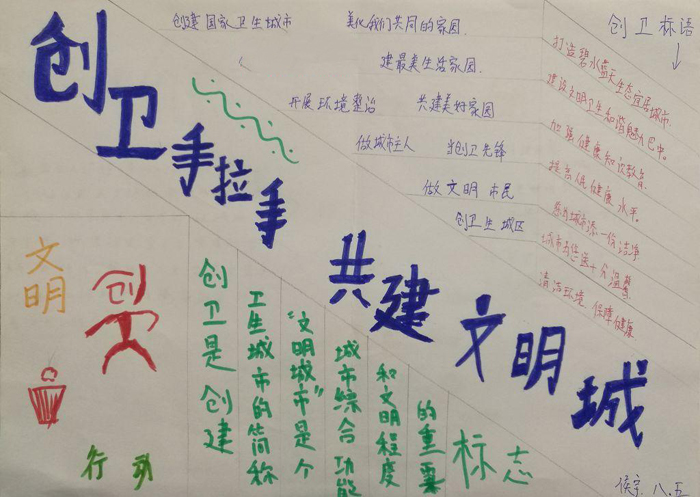 创卫手拉手
共建文明城
创建国家卫生城市 美化我们共同的家园
建最美生活家园.
开展环境整治 共建美好家园
做城市主人 当创卫先锋
做文明市民
创卫生城区
创卫标语
打造碧水蓝天生态宜居城市.
建设文明卫生和谐魅力巴中.
加强健康知识教育.
提高促健康水平.
您为城市添一份洁净
城市为您送十分温馨.
清洁环境 保障健康
文明
创
行动
创卫是创建
卫生城市的简称
"文明城市"是个
城市综合功能
和文明程度
的重要
标志
八.五